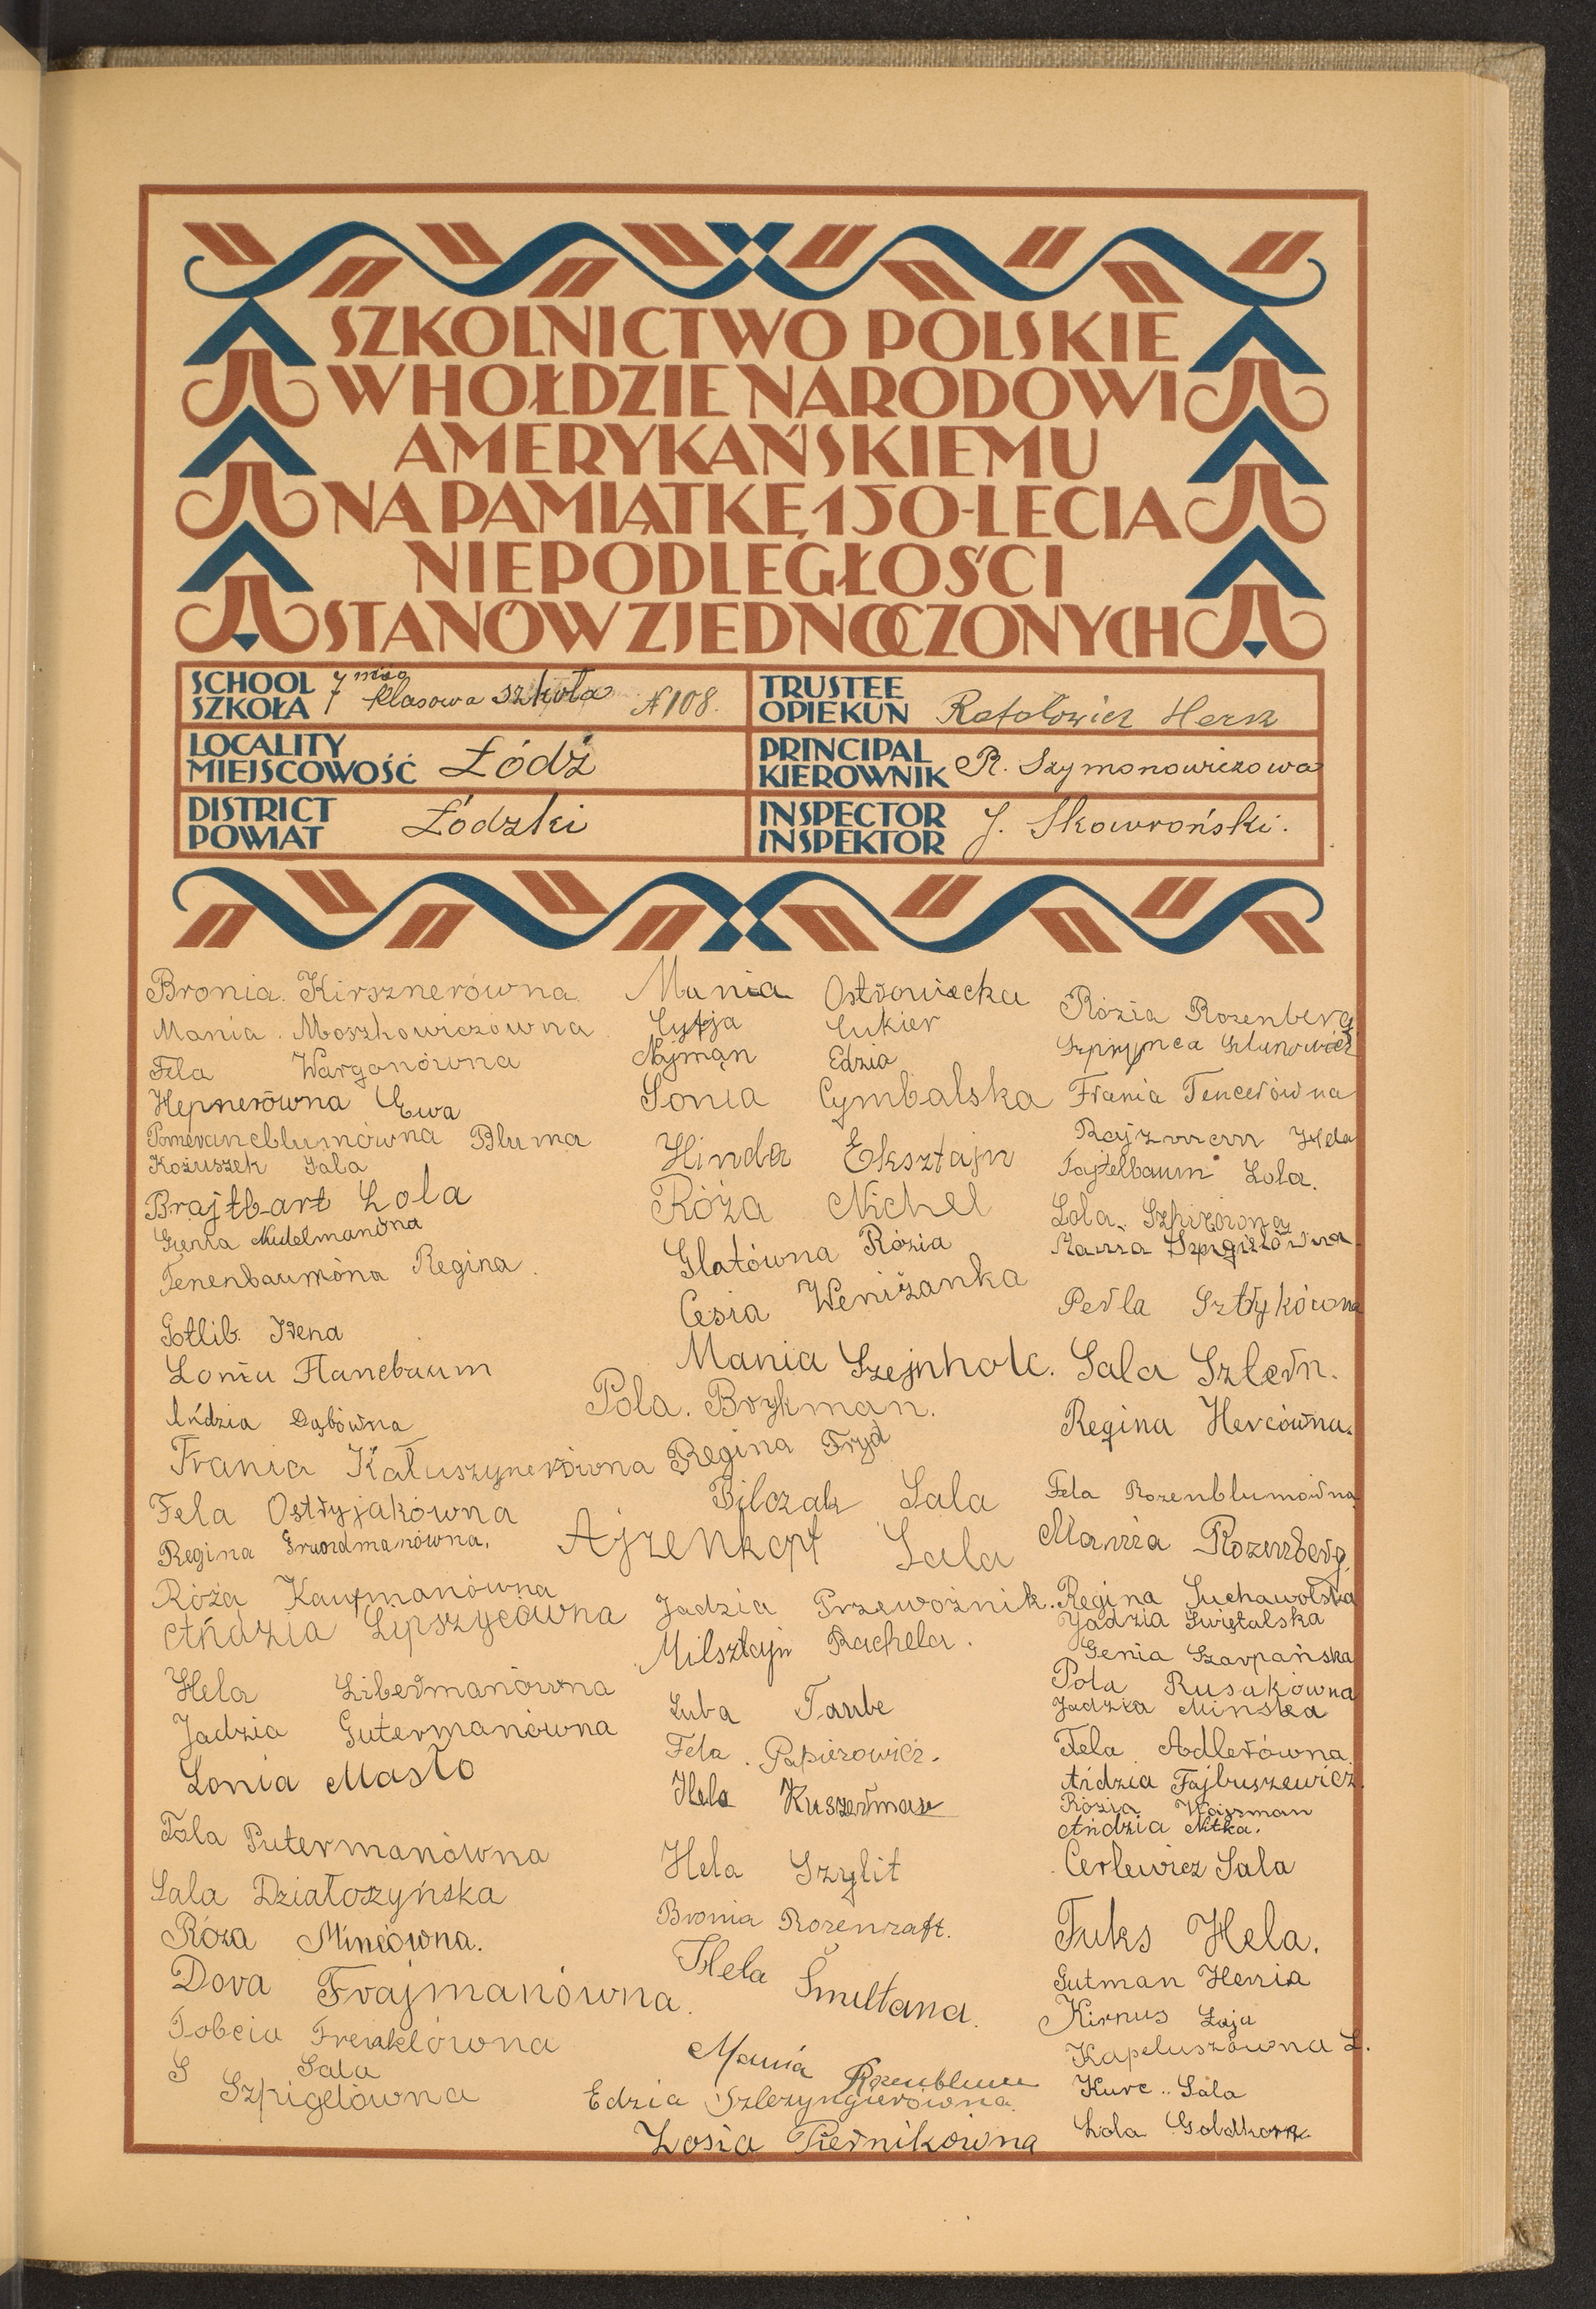 SZKOLNICTWO POLSKIE
W HOŁDZIE NARODOWI
AMERYKAŃSKIEMU
NA PAMIĄTKĘ 150-LECIA
NIEPODLEGŁOŚCI
STANÓW ZJEDNOCZONYCH
SCHOOL
SZKOŁA
7 mio klasowa szkoła № 108.
TRUSTEE
OPIEKUN
Rafałowicz Hersz
LOCALITY
MIEJSCOWOŚĆ
Łódź
PRINCIPAL
KIEROWNIK
R. Szymonowiczowa
DISTRICT
POWIAT
Łódzki
INSPECTOR
INSPEKTOR
J. Skowroński.
Bronia Kirsznerówna
Mania Moszkowiczówna
Fela Wargonówna
Hepnerówna Ewa
Pomerancblumówna Bluma
Kożuszek Sala
Brajtbart Lola
Genia Nudelmanówna
Tenenbaumóna Regina.
Gotlib Irena
Lonia Flancbaum
Andzia Dąbówna
Frania Kałuszynerówna
Fela Ostryjakówna
Regina Grwordmanówna.
Róża Kaufmanówna
Andzia Lipszycówna
Hela Libermanówna
Jadzia Gutermanówna
Lonia Masło
Tola Putermanówna
Sala Działoszyńska
Róza Mincówna.
Dora Frajmanówna.
Tobcia Frenklówna
S Sala
Szpigelówna
Mania Ostrowiecka
Cytja Cukier
Najman Edzia
Sonia Cymbalska
Hinda Eksztajn
Róża Nichel
Glatówna Rózia
Cesia Weniżanka
Mania Szejnholc.
Pola. Brykman.
Regina Fryd
Bilczak Sala
Ajzenkopf Sala
Jadzia Przewoźnik.
Milsztajn Rachela.
Luba Taube
Fela Papierowicz.
Hela Kuszerman
Hela Szylit
Bronia Rozencraft.
Hela Śmultana.
Mania Rozenblum
Edzia Szlezyngierówna.
Zosia Piernikówna
Rózia Rozenberg
Szprynca Szlumowicz
Frania Tencerówna
Rajzman Hela
Tajtelbaum Lola.
Lola Szpirówna
Mania Szpigielówna
Perla Sztrykówna
Sala Szlern.
Regina Hercówna.
Fela Rozenblumówna
Mania Rozenberg
Regina Suchawolska
Jadzia Świętalska
Genia Szarpańska
Pola Rusakówna
Jadzia Mińska
Fela Adlerówna.
Andzia Fajbuszewicz.
Rózia Wajsman
Andzia Nitka.
Cerlewicz Sala
Fuks Hela.
Gutman Henia
Kirnus Łaja
Kapeluszówna L.
Kurc Sala
Lola Goldhorn